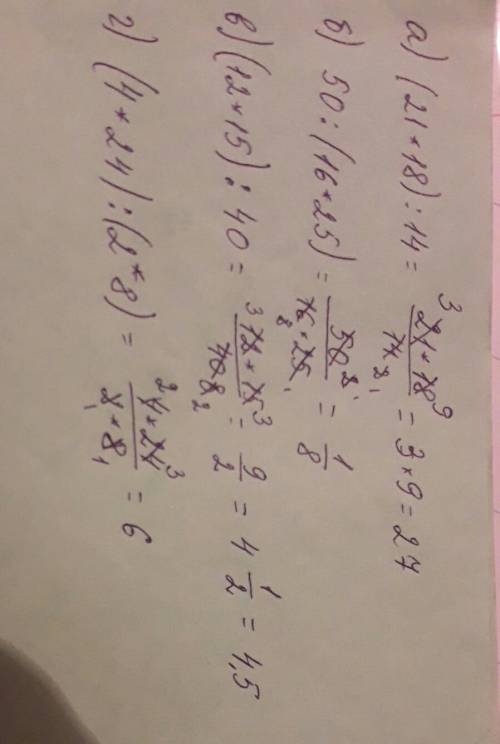 а) (21*18):14 = ³21*18⁹/14 2 1 = 3*9 = 27
б) 50:(16*25) = 50 2 1/16 8*25 1 = 1/8
в) (12*15):40 = ³12*15³/40 8 2 = 9/2 = 4 1/2 = 4,5
г) (4*24):(2*8) = ²4*24³/2 1*8 1 = 6